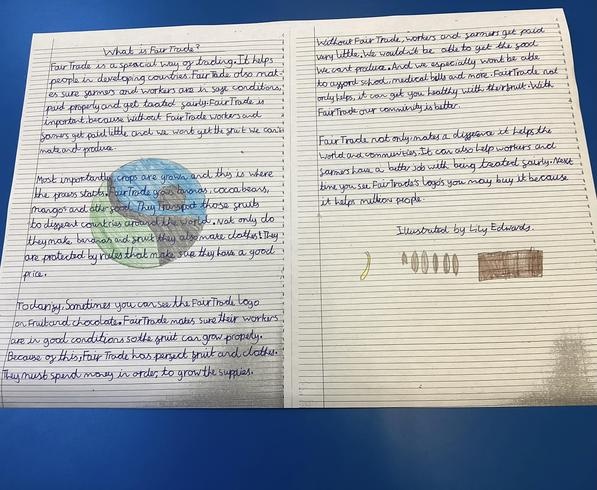 What is Fair Trade?
Fair Trade is a speacial way of trading. It helps
people in developing countries. Fair Trade also mat-
es sure farmers and workers are in safe conditions,
paid properly and get treated fairly. Fair Trade is
important, because without Fair Trade workers and
farmers get paid little and we wont get the fruit we can't
make and produce.
Most importantly, crops are grown, and this is where
the process starts. Fair Trade grows bananas, cocoa beans,
mangos and other food. They transport those fruits
to different countries around the world. Not only do
they make bananas and fruit they also make clothes! They
are protected by rules that make sure they have a good
price.
Today, Sometimes you can see the Fair Trade logo
on Fruit and chocolate. Fair Trade makes sure their workers
are in good conditions so the fruit can grow properly.
Because of this, Fair Trade has perfect fruit and clothes.
They must spend money in order, to grow the supplies.
Without Fair Trade, workers and farmers get paid
very little. We wouldn't be able to get the food
we cant produce. And we especially wont be able
to afford school, medical bells and more. Fair Trade not
only helps, it can get you healthy with their fruit. With
Fair Trade our community is better.
Fair Trade not only makes a difference it helps the
world and communities. It can also help workers and
farmers have a better job with being treated fairly. Next
time you see Fair Trade's logos you may buy it because
it helps million people.
Illustrated by Lily Edwards.